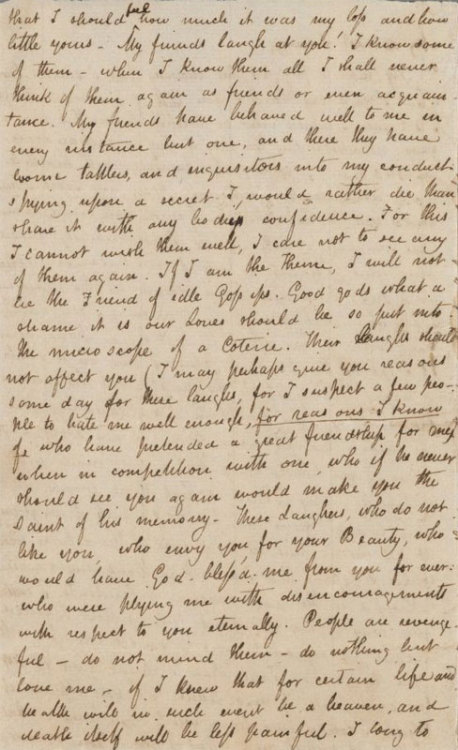 that I should feel how much it was my loss and how
little yours - My friends laugh at you! I know some
of them - when I know them all I shall never
think of them again as friends or even acquain
tance. My friends have behaved well to me in
every instance but one, and there they have
become tattlers, and inquisitors into my conduct:
spying upon a secret I would rather die than
share it with any body's confidence. For this
I cannot wish them well, I care not to see any
of them again. If I am the Theme, I will not
be the Friend of idle Gossips. Good gods what a
shame it is our Loves should be so put into
the microscope of a Coterie. Their laughs should
not affect you (I may perhaps give you reasons
some day for these laughs, for I suspect a few peo-
ple to hate me well enough, for reasons I know
of, who have pretended a great friendship for me)
when in competition with one, who if he never
should see you again would make you the
saint of his memory - These Laughers, who do not
like you, who envy you for your Beauty, who
would have God-bless'd-me from you for ever:
who were plying me with disencouragements
with respect to you eternally. People are revenge-
ful - do not mind them - do nothing but
love me - if I knew that for certain life and
health will in such event be a heaven, and
death itself will be less painful. I long to